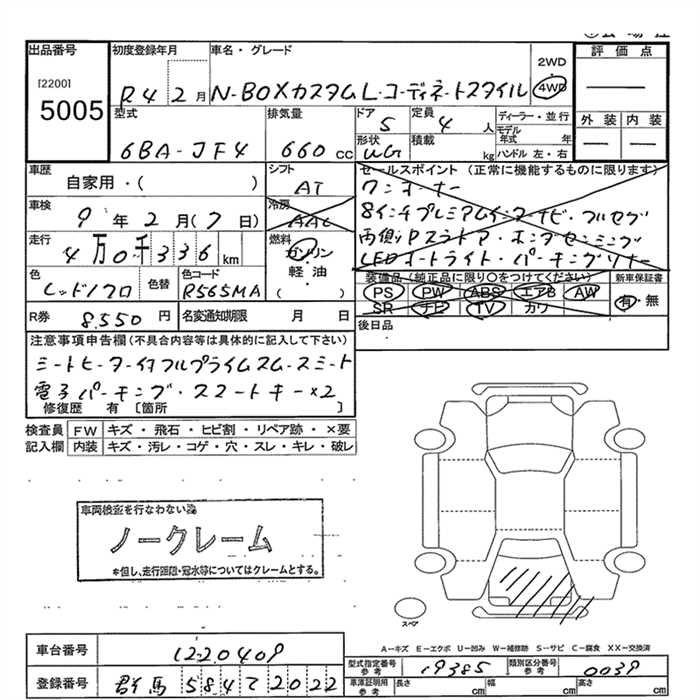 出品番号
[2200]
5005
初度登録年月
R4 2月
車名・グレード
N-BOXカスタムL・コーディネートスタイル
2WD
4WD
評価点
外装 内装
型式
6BA-JF4
排気量
660 cc
ドア
5
定員
4 人
形状
WG
積載
kg
ディーラー・並行
モデル年式 年
ハンドル 左・右
車歴
自家用・( )
シフト
AT
車検
9年2月(7日)
冷房
AAC
走行
4万0千336 km
燃料
ガソリン
軽油
( )
色
レッド/クロ
色替
色コード
R565MA
R券
8,550円
名変通知期限 月 日
セールスポイント(正常に機能するものに限ります)
ワンオーナー
8インチプレミアムインターナビ・フルセグ
両側Pスラドア・ホンダセンシング
LEDオートライト・パーキングソナー
装備品(純正品に限り○をつけてください)
PS PW ABS エアB AW
SR ナビ TV カワ
新車保証書
有・無
後日品
注意事項申告欄(不具合内容等は具体的に記入して下さい)
シートヒーター付フルプライムスムースシート
電子パーキング・スマートキー×2
修復歴 有 [箇所 ]
検査員記入欄
FW キズ・飛石・ヒビ割・リペア跡・×要
内装 キズ・汚レ・コゲ・穴・スレ・キレ・破レ
車両検査を行なわない為
ノークレーム
*但し、走行距離・冠水等についてはクレームとする。
スペア
A-キズ E-エクボ U-凹み W-補修跡 S-サビ C-腐食 XX-交換済
車台番号
1220409
登録番号
群馬 584 て 2022
型式指定番号
参考
19385
類別区分番号
参考
0039
車庫証明用
参考
長さ cm
幅 cm
高さ cm